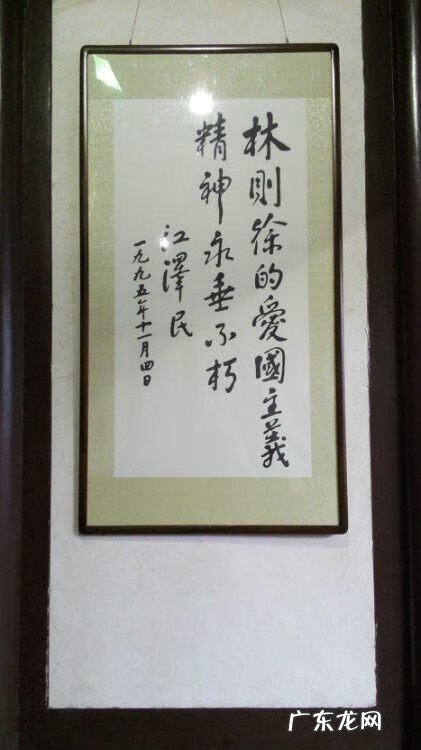 林則徐的愛國主義
精神永垂不朽
江澤民
一九九五年十一月四日
广东龙网